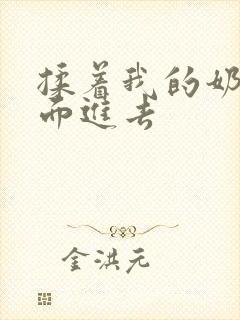 揉着我的奶
而進去
金洪元